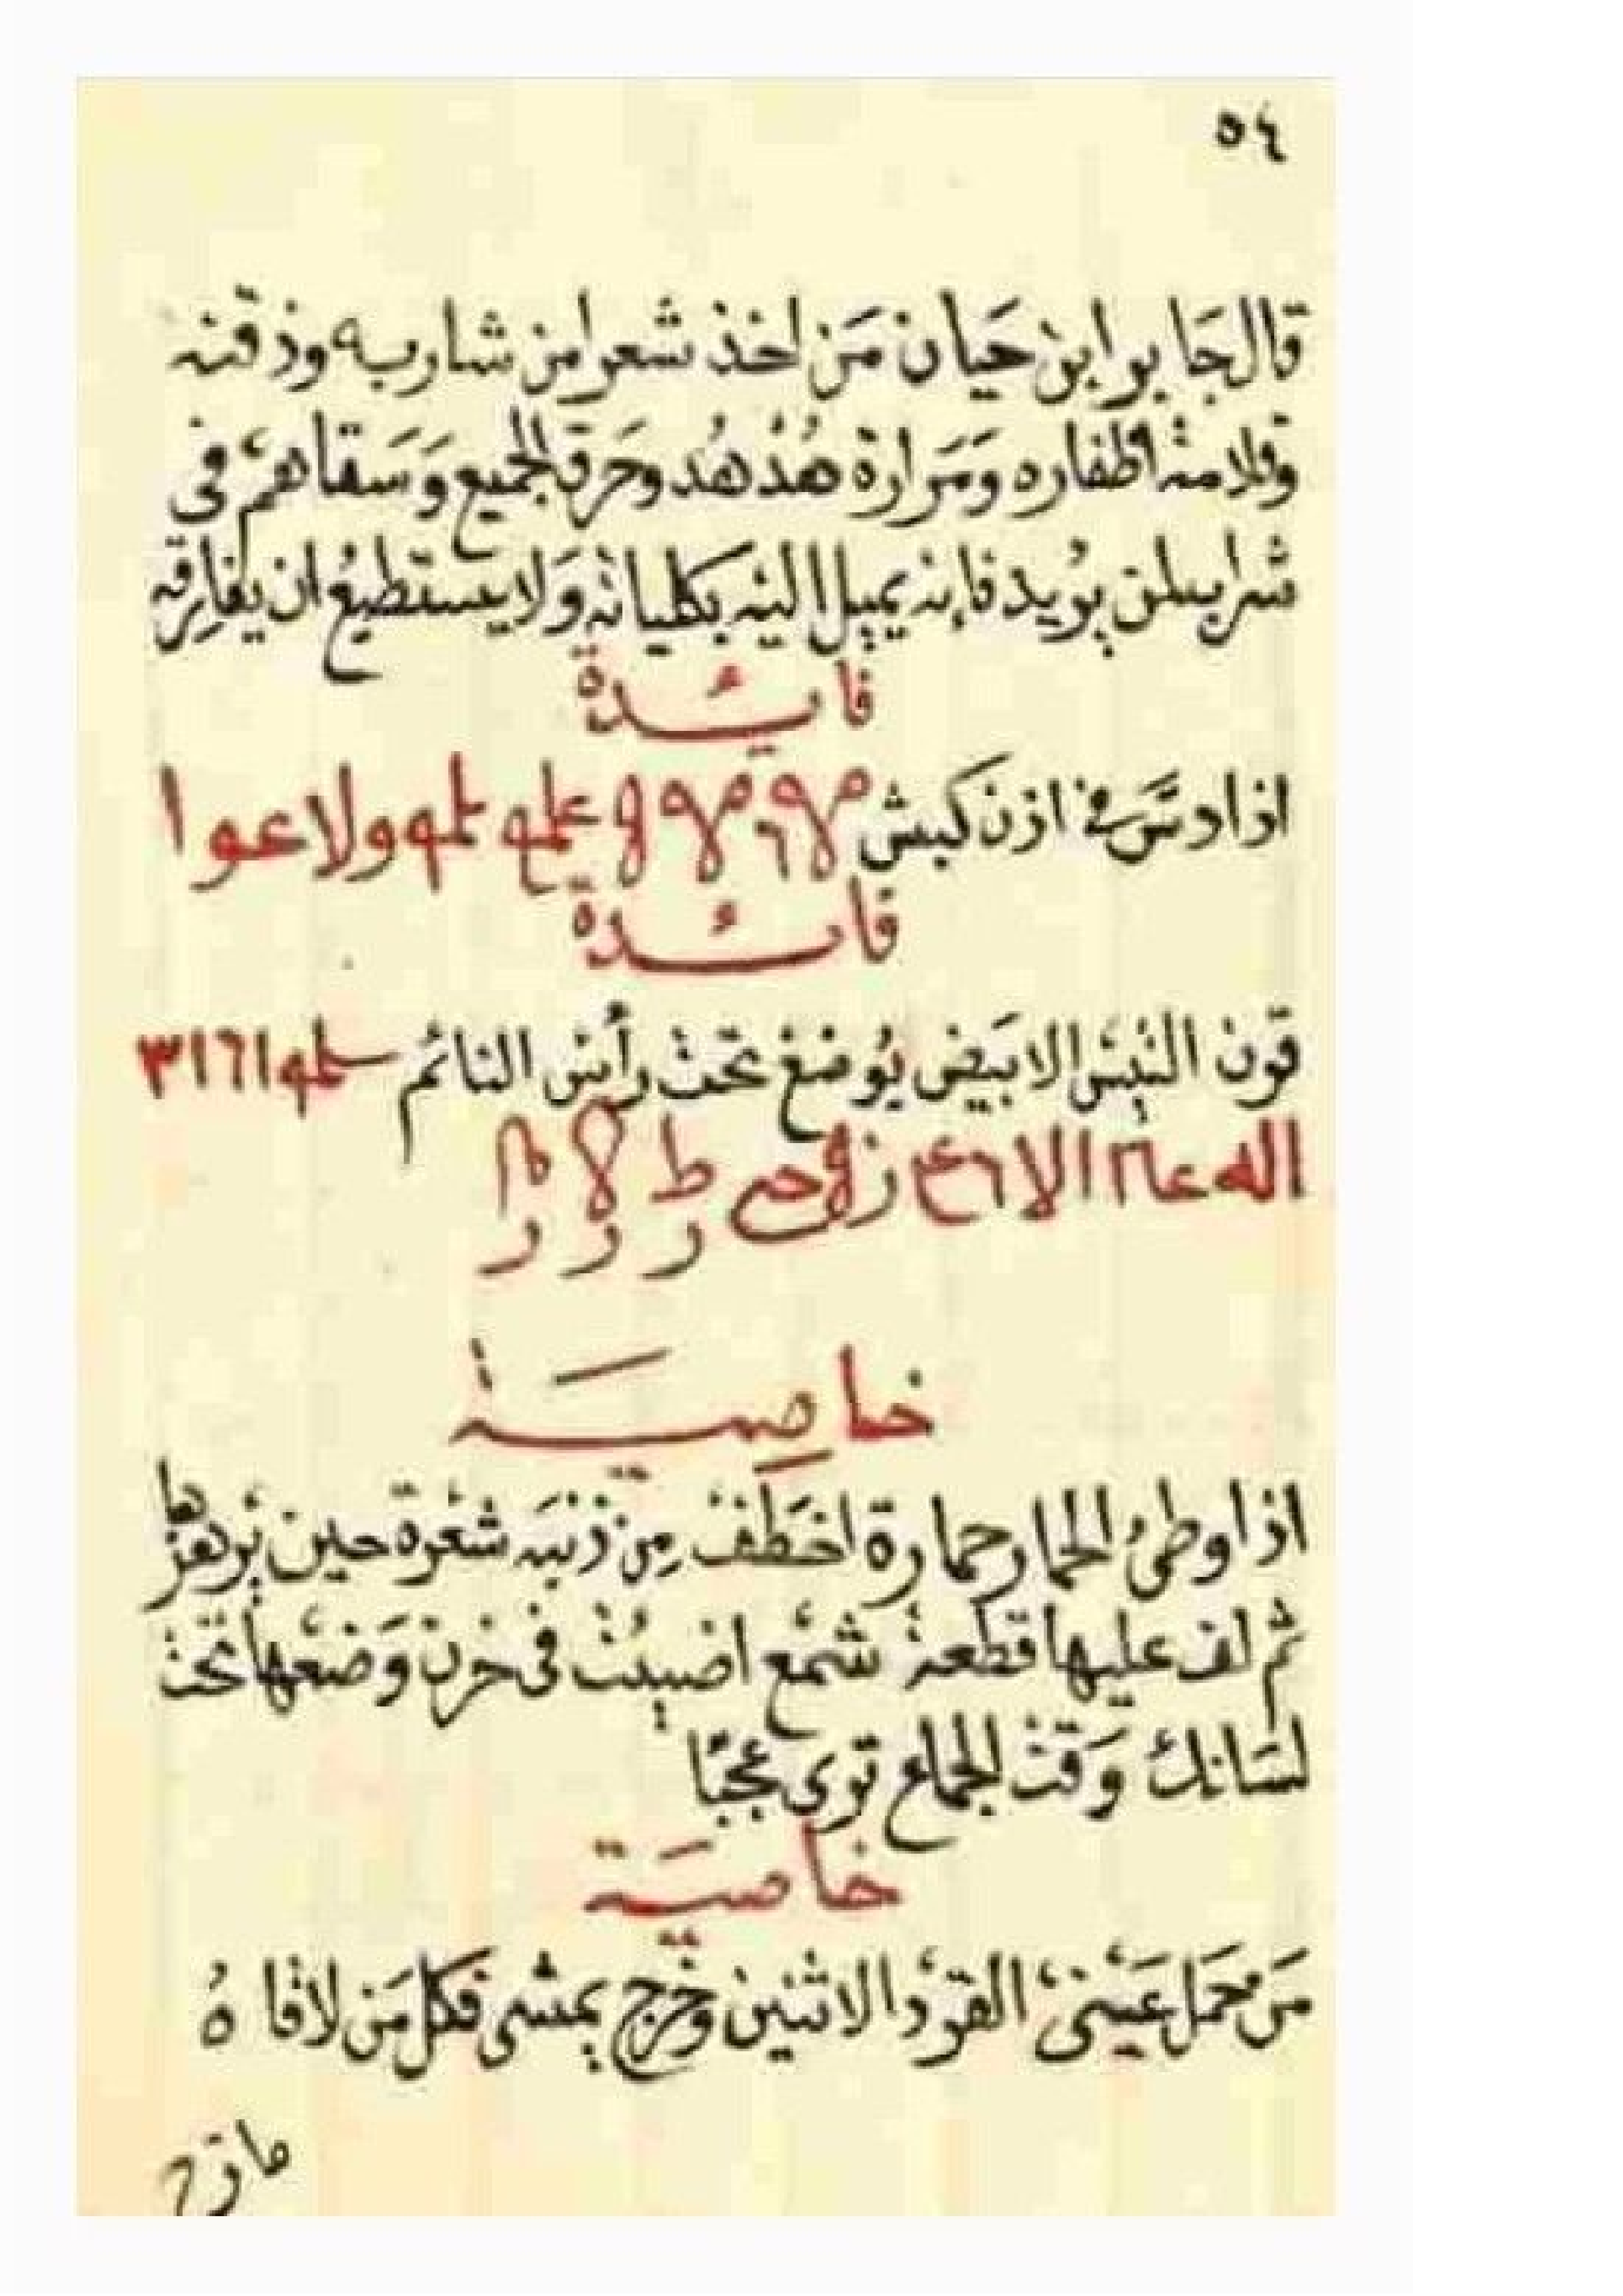 ٥٤
قال جَابر ابن حَيان مَن اخذ شعرا من شاربه وذقنه
وقلامة اظفاره وَمَرارة هُدْهُد وحَرق الجميع وَسقاهم في
شراب لمن يُريد فإنه يميل اليْه بكلياته وَلا يستطيعُ ان يفارقه
فايئدة
اذا دسَّ في اذن كبش
فائدة
قرن التيْس الابيَض يُوضعْ تحت رأس النائم
خاصِيَة
اذا وطئُ الحمار حمارة اخطَف مِن ذنبَه شعْرة حين
ثم لف عليها قطعة شمْع في وَضعْها تحت
لسَانك وَقت الجماع ترى عجبًا
خاصيَة
مَن حمَل عَيْنىْ القرْد الاثنين وخرج يمشى فكل مَن لاقا هُ
مازح